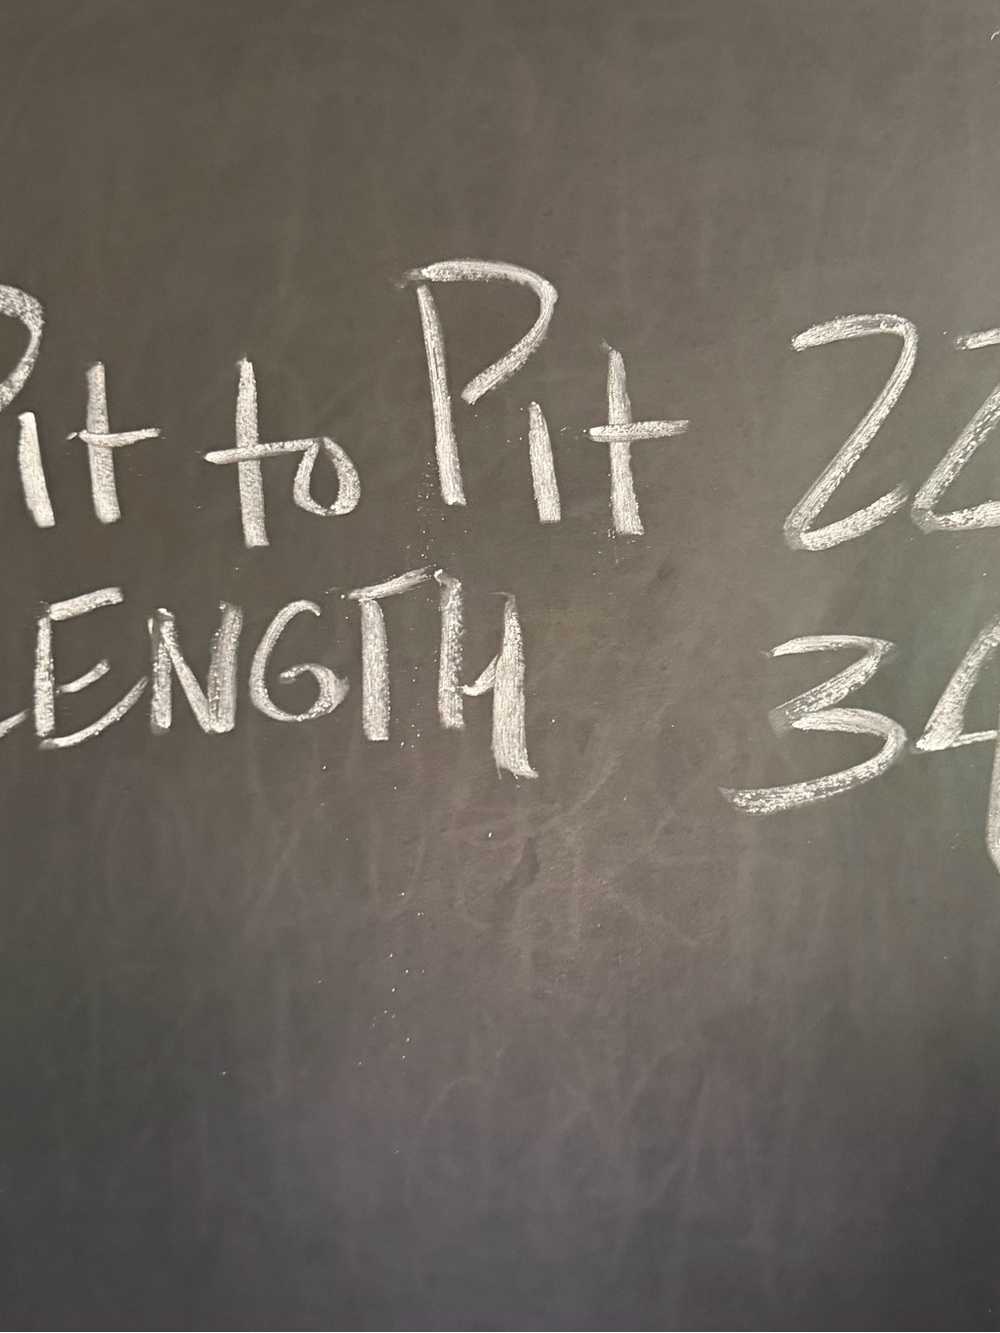 Pit to Pit 22
LENGTH 34